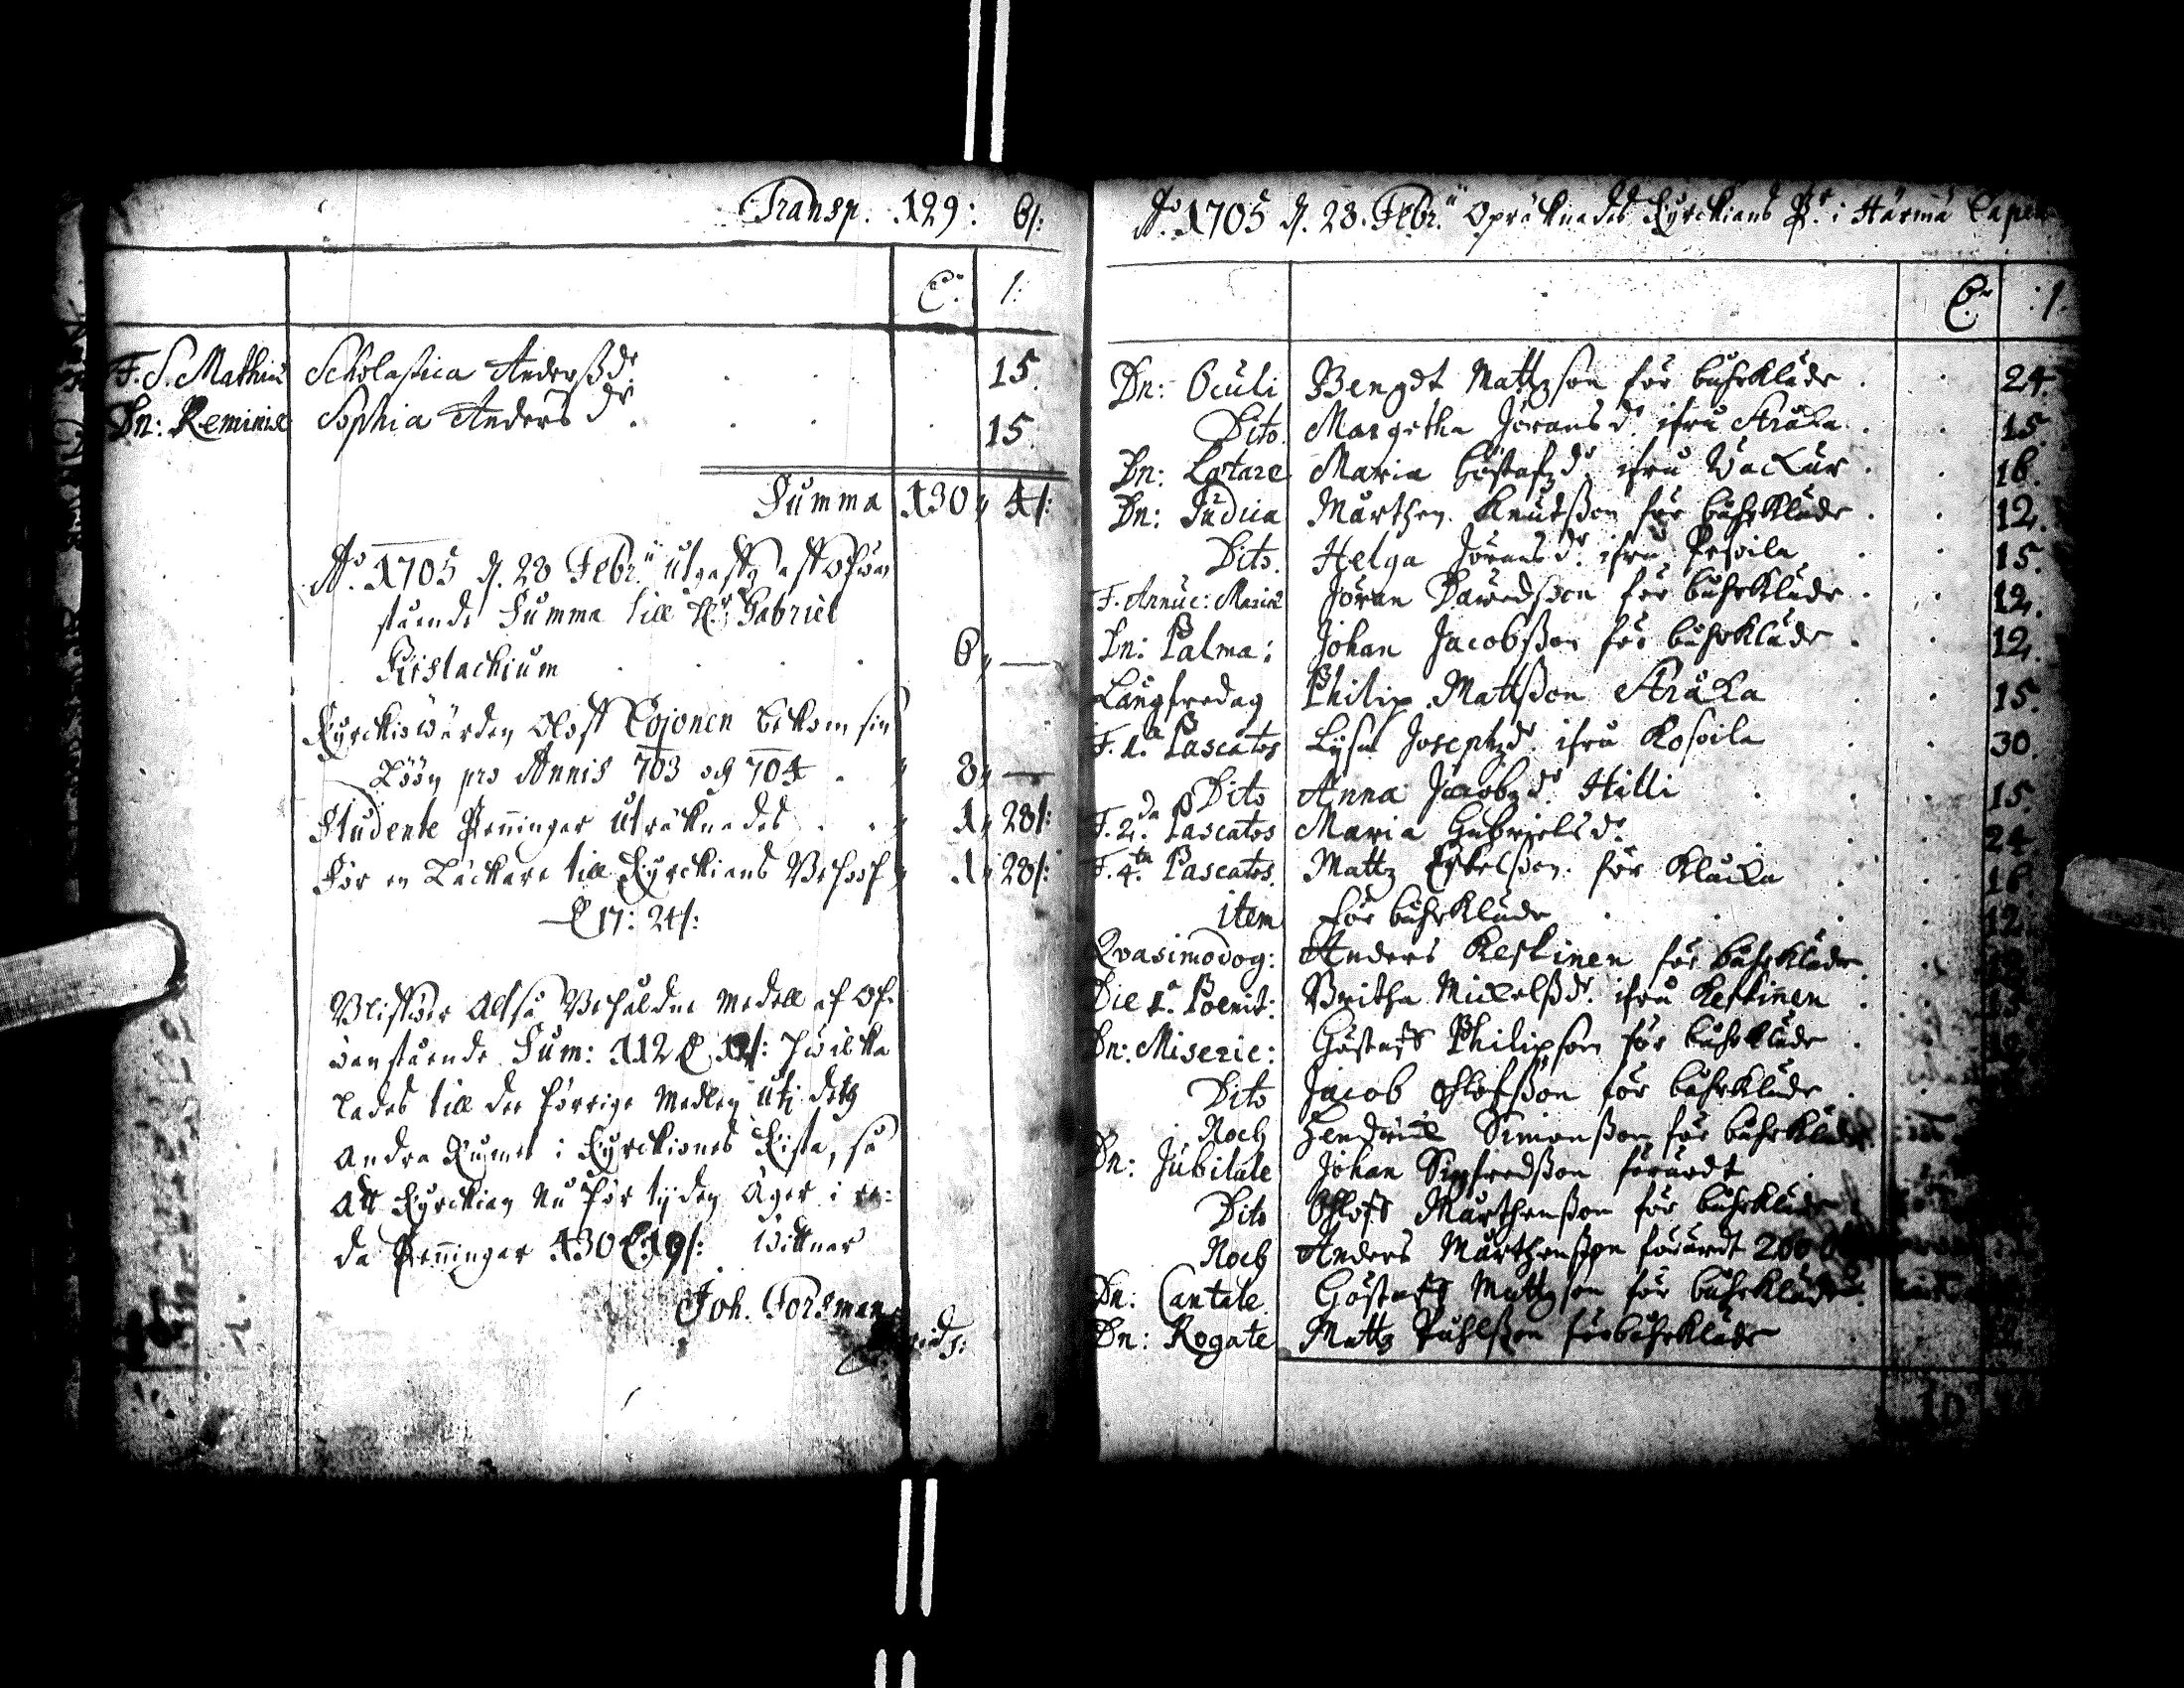 Transp. 129: 6/:
C: /:
F. S. Mathiæ Scholastica Andersßdr 15.
Dn: Reminisc Sophia Anders dr. 15.
Summa 130 „ 4/:
Ao. 1705 d. 28 Febr. utgafs af ofwan
stående Summa till H. Gabriel
Peistachium 6 „ —
Kyrckiowärden Oloff Pojonen bekom sin
Löön pro Annis 703 och 704 . 8 „ —
Studente Penningar Uträknades . . 1 „ 28/:
För en Läckare till Kyrckians Behoof 1 „ 28/:
C 17: 24/:
Blifwer altså Behåldne medell af of-
wanstående Sum: 112 C 12/: hwilka
lades till de förrige Medlen uti dett
andra Rumet i Kyrckiones Kista, så
att Kyrckian nu för tijden äger i re-
da Penningar 130 C 19/: Wittnar
Joh. Forsman
Ao. 1705 d. 28. Febr. Opräknades Kyrckians Pr. i Härmä Capel
C. /.
Dn: Oculi Bengdt Mattzson för båhrkläde . . 24.
Dito. Margetha Jörans d. ifrå Knåka . . 15.
Dn: Lætare Maria Göstafzdr. ifrå Wackur . . 16.
Dn: Judica Mårthen Knutsßon för båhrkläde . . 12.
Dito. Helga Jörans dr. ifrå Pesoila . . 15.
F. Anũc: Mariæ Jöran Dawedsson för båhrkläde . . 12.
Dn: Palma: Johan Jacobsßon för båhrkläde . . 12.
Långfredag Philip Mattsßon Knåka . . 15.
F. 1.a Pascatos Lijsa Josephzd. ifrå Kosoila . . 30.
Dito Anna Jacobzd. Hilli . . 15.
F. 2.da Pascatos Maria Gabriels dr. . . 24
F. 4.ta Pascatos. Mattz Eskelsßon för Klåcka . . 16.
item för båhrkläde . . 12
Qvasimodog: Anders Keskinen för båhrkläde . 12
Die 1.a Poenit: Britha Mickelsßdr. ifrå Keskinen . . 15
Dn: Miseric: Göstaff Philipson för båhrkläde .
Dito Jacob Olofsßon för båhrkläde .
Noch Hendrick Simonsßon för båhrkläde
Dn: Jubilate Johan Sigfredsßon förärdt
Dito Oloff Mårthensßon för båhrkläde
Noch Anders Mårthensßon förärdt 200
Dn: Cantate Göstaff Mattzson för båhrkläde
Dn: Rogate Mattz Påhlsßon för båhrkläde
10